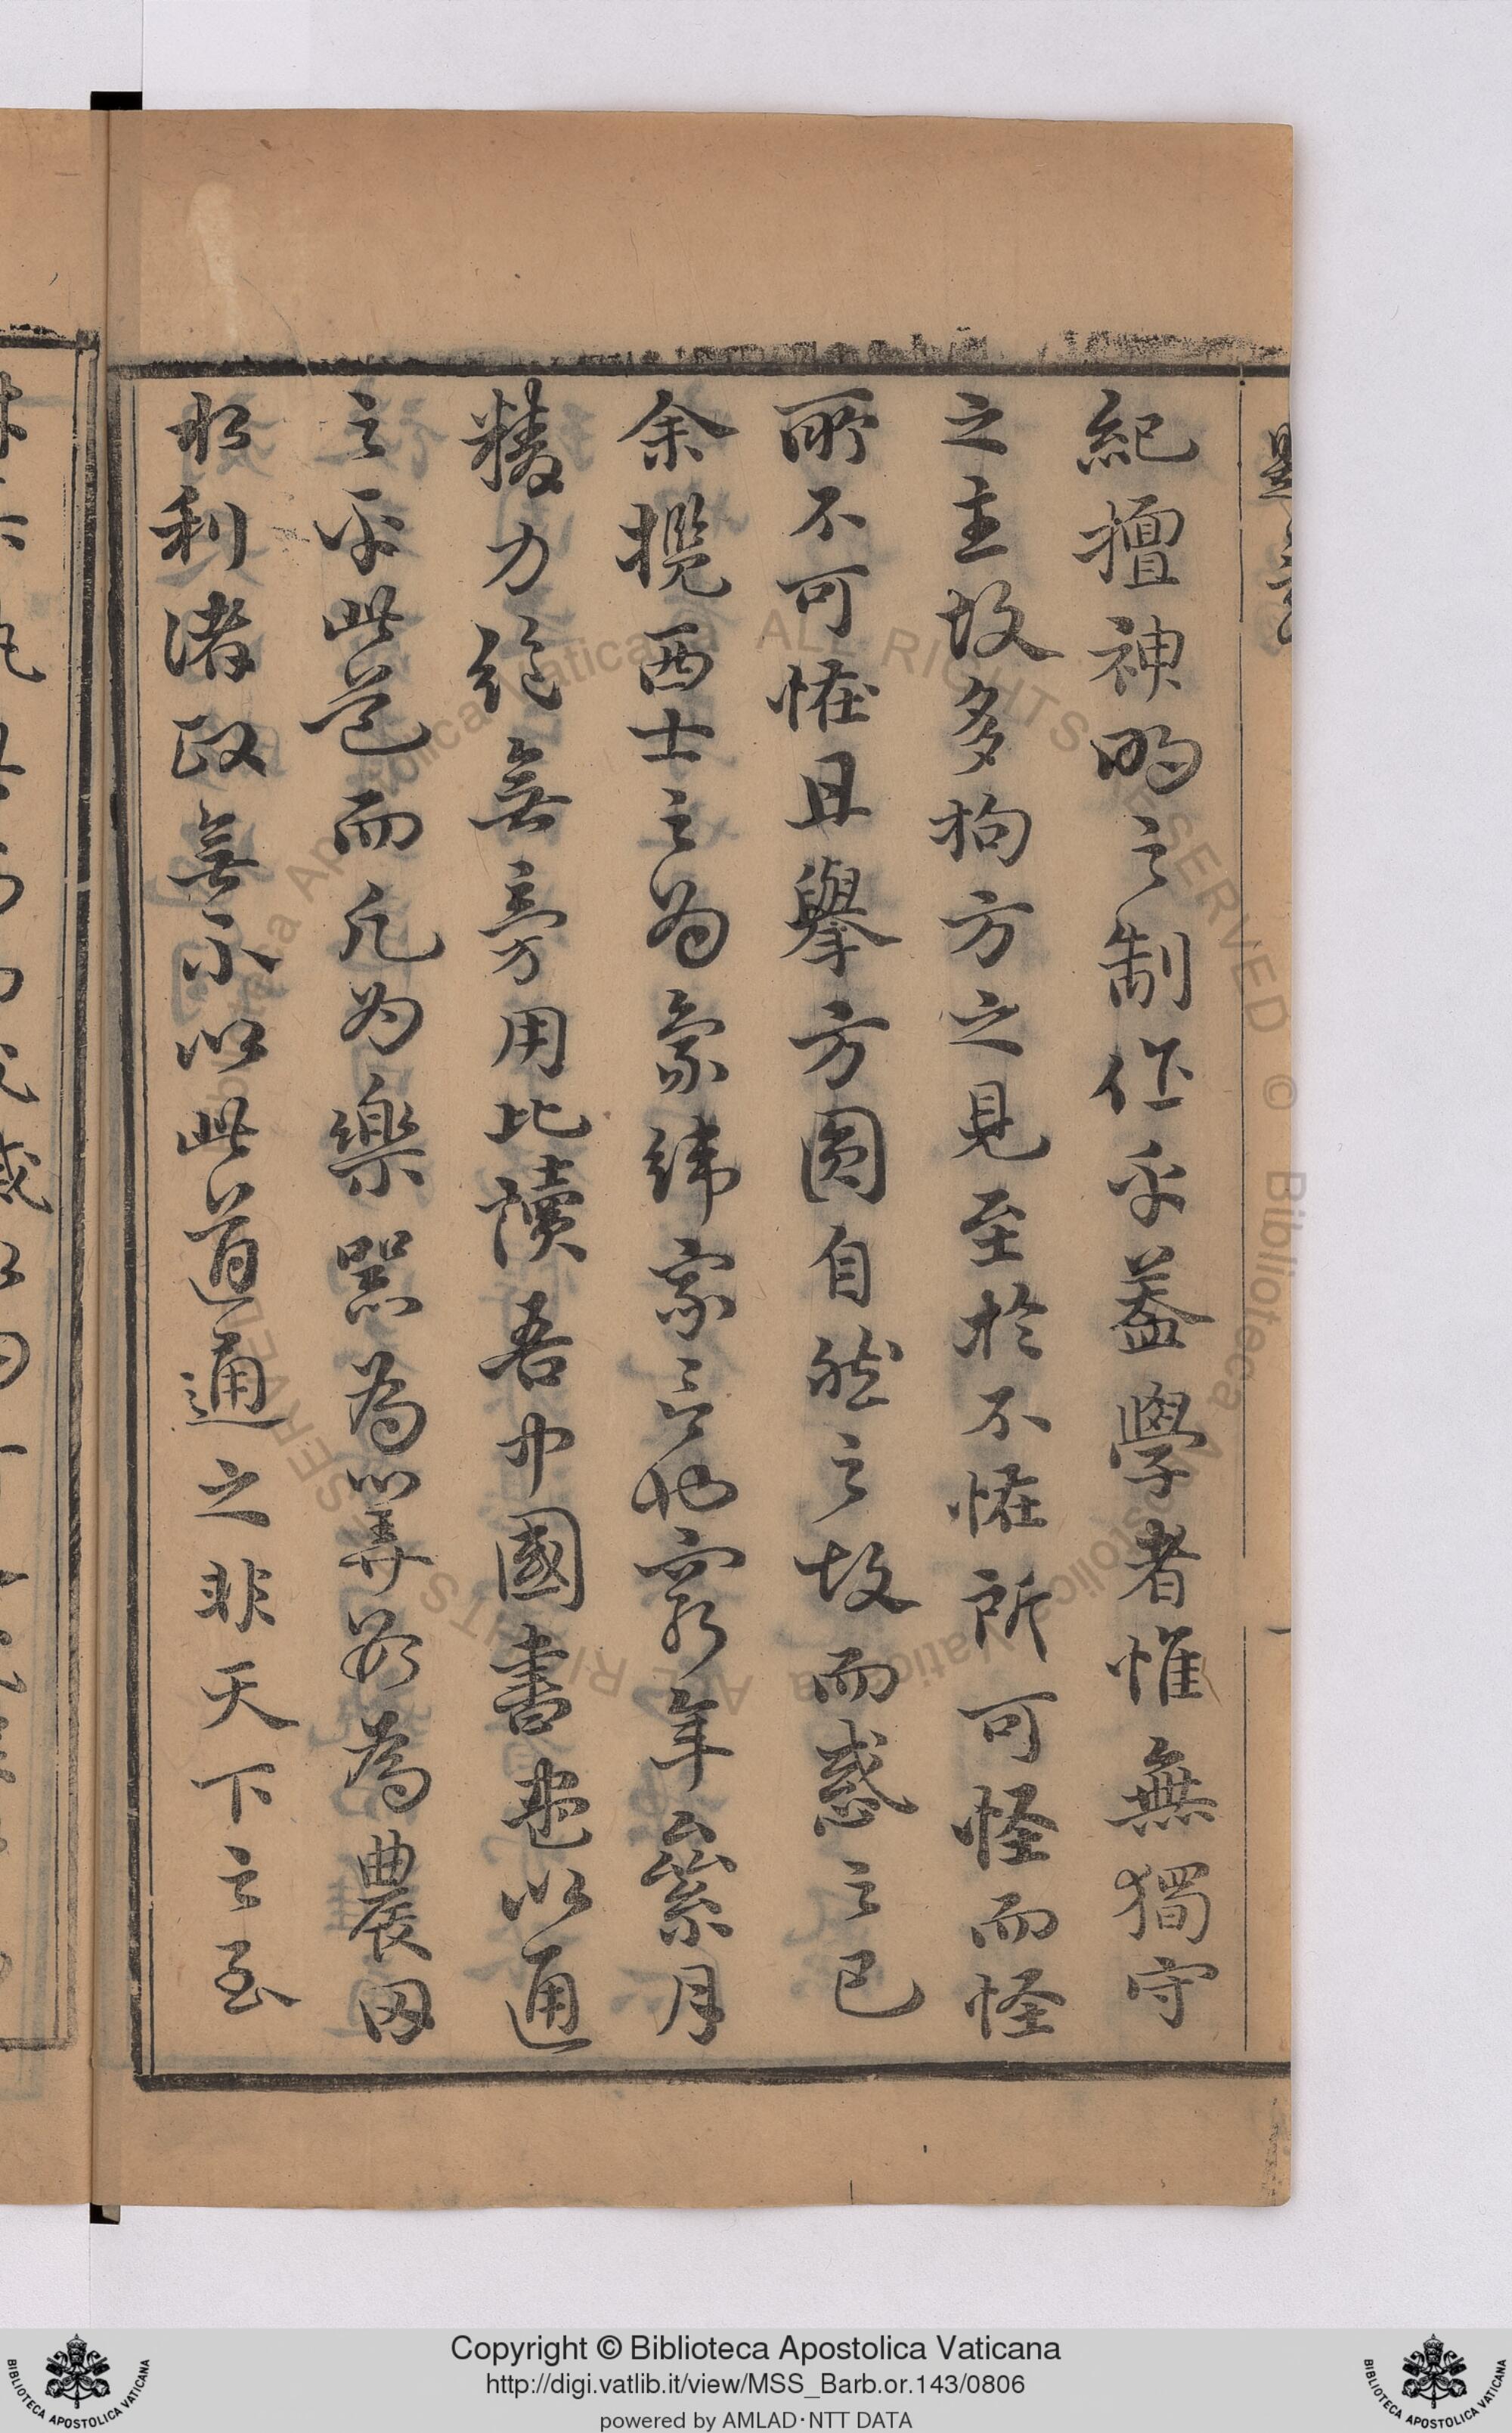 紀擅神明之制作乎蓋學者惟無獨守
之主故多拘方之見至於不怪所可怪而怪
所不可怪且舉方圓自然之故而惑之已
余攬西士之為象緯家言也窮年累月
精力絕無旁用比讀吾中國書盡以通
之乎此道而凡為樂器為筭教為農田
水利諸政無不以此道通之非天下之至
Copyright © Biblioteca Apostolica Vaticana
http://digi.vatlib.it/view/MSS_Barb.or.143/0806
powered by AMLAD·NTT DATA
BIBLIOTECA APOSTOLICA VATICANA
BIBLIOTECA APOSTOLICA VATICANA
Biblioteca Apostolica Vaticana ALL RIGHTS RESERVED ©